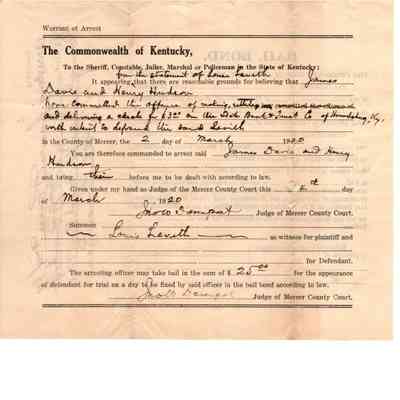 Warrant of Arrest
The Commonwealth of Kentucky,
To the Sheriff, Constable, Jailer, Marshal or Policeman in the State of Kentucky:
from the statement of Louis Leveth
It appearing that there are reasonable grounds for believing that James
Davis and Henry Hudson
have committed the offense of making,
and delivering a check for $3 on the State Bank & Trust Co of Harrodsburg, Ky.,
with intent to defraud the said Leveth
in the County of Mercer, the 2 day of March 1920
You are therefore commanded to arrest said James Davis and Henry
Hudson
and bring them before me to be dealt with according to law.
Given under my hand as Judge of the Mercer County Court this 6th day
of March , 1920
Judge of Mercer County Court.
Summon
Louis Leveth as witness for plaintiff and
for Defendant.
The arresting officer may take bail in the sum of $ 25.00 for the appearance
of defendant for trial on a day to be fixed by said officer in the bail bond according to law.
Judge of Mercer County Court.